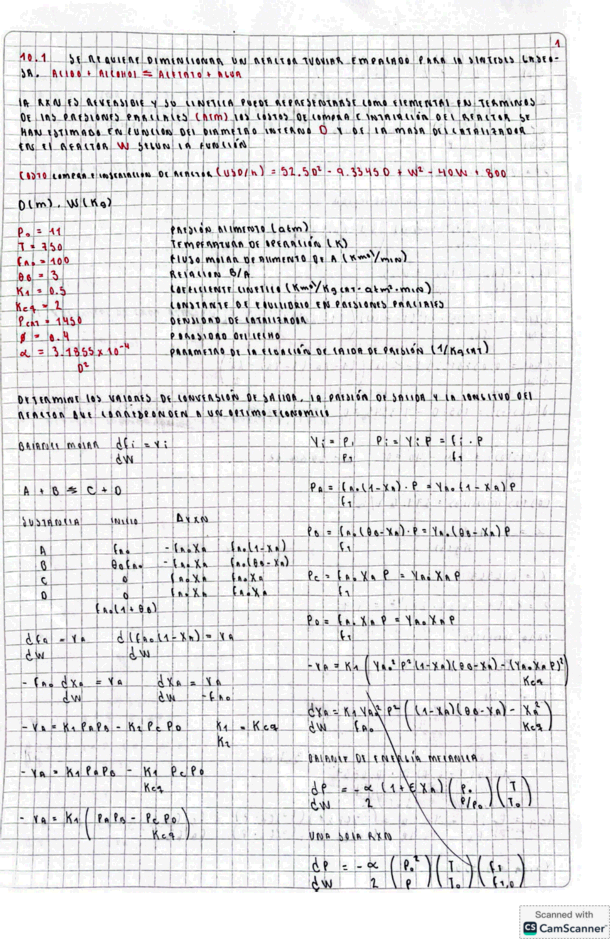 1
10.1 SE REQUIERE DIMENSIONAR UN REACTOR TUBULAR EMPACADO PARA LA SINTESIS GASEO-
SA. ACIDO + ALCOHOL ⇌ ACETATO + AGUA
LA RXN ES REVERSIBLE Y SU CINETICA PUEDE REPRESENTARSE COMO ELEMENTAL EN TERMINOS
DE LAS PRESIONES PARCIALES (ATM) LOS COSTOS DE COMPRA E INSTALACION DEL REACTOR SE
HAN ESTIMADO EN FUNCION DEL DIAMETRO INTERNO D Y DE LA MASA DE CATALIZADOR
EN EL REACTOR W SEGUN LA FUNCIÓN
COSTO COMPRA E INSTALACION DE REACTOR (USD/h) = 52.5D² - 9.3345D + W² - 40W + 800
D(m), W(Kg)
P₀ = 11 PRESIÓN ALIMENTO (atm)
T = 750 TEMPERATURA DE OPERACIÓN (K)
FA₀ = 100 FLUJO MOLAR DE ALIMENTO DE A (Kmol/min)
θB = 3 RELACION B/A
K₁ = 0.5 COEFICIENTE CINETICO (Kmol/Kgcat·atm²·min)
Keq = 2 CONSTANTE DE EQUILIBRIO EN PRESIONES PARCIALES
ρcat = 1450 DENSIDAD DE CATALIZADOR
ϕ = 0.4 POROSIDAD DEL LECHO
α = 3.1855 x 10⁻⁴ / D² PARAMETRO DE LA ECUACIÓN DE CAIDA DE PRESIÓN (1/Kgcat)
DETERMINE LOS VALORES DE CONVERSIÓN DE SALIDA, LA PRESIÓN DE SALIDA Y LA LONGITUD DEL
REACTOR QUE CORRESPONDEN A UN OPTIMO ECONOMICO
BALANCE MOLAR dFi/dW = ri
A + B ⇌ C + D
SUSTANCIA INICIO ΔRXN
A FA₀ -FA₀XA FA₀(1-XA)
B θBFA₀ -FA₀XA FA₀(θB-XA)
C 0 FA₀XA FA₀XA
D 0 FA₀XA FA₀XA
FA₀(1+θB)
dFA/dW = rA d(FA₀(1-XA))/dW = rA
-FA₀ dXA/dW = rA dXA/dW = rA/-FA₀
-rA = K₁PAPB - K₂PCPD K₁/K₂ = Keq
-rA = K₁PAPB - K₁/Keq PCPD
-rA = K₁(PAPB - PCPD/Keq)
Yi = Pi/PT Pi = YiP = Fi/FT · P
PA = FA₀(1-XA)/FT · P = YA₀(1-XA)P
PB = FA₀(θB-XA)/FT · P = YA₀(θB-XA)P
PC = FA₀XA/FT P = YA₀XAP
PD = FA₀XA/FT P = YA₀XAP
-rA = K₁(YA₀²P²(1-XA)(θB-XA) - (YA₀XAP)²/Keq)
dXA/dW = K₁YA₀²P²/FA₀ ((1-XA)(θB-XA) - XA²/Keq)
BALANCE DE ENERGÍA MECANICA
dP/dW = -α/2 (1+εXA)(P₀/P/P₀)(T/T₀)
UNA SOLA RXN
dP/dW = -α/2 (P₀²/P)(T/T₀)(FT/FT,0)
Scanned with
CS CamScanner